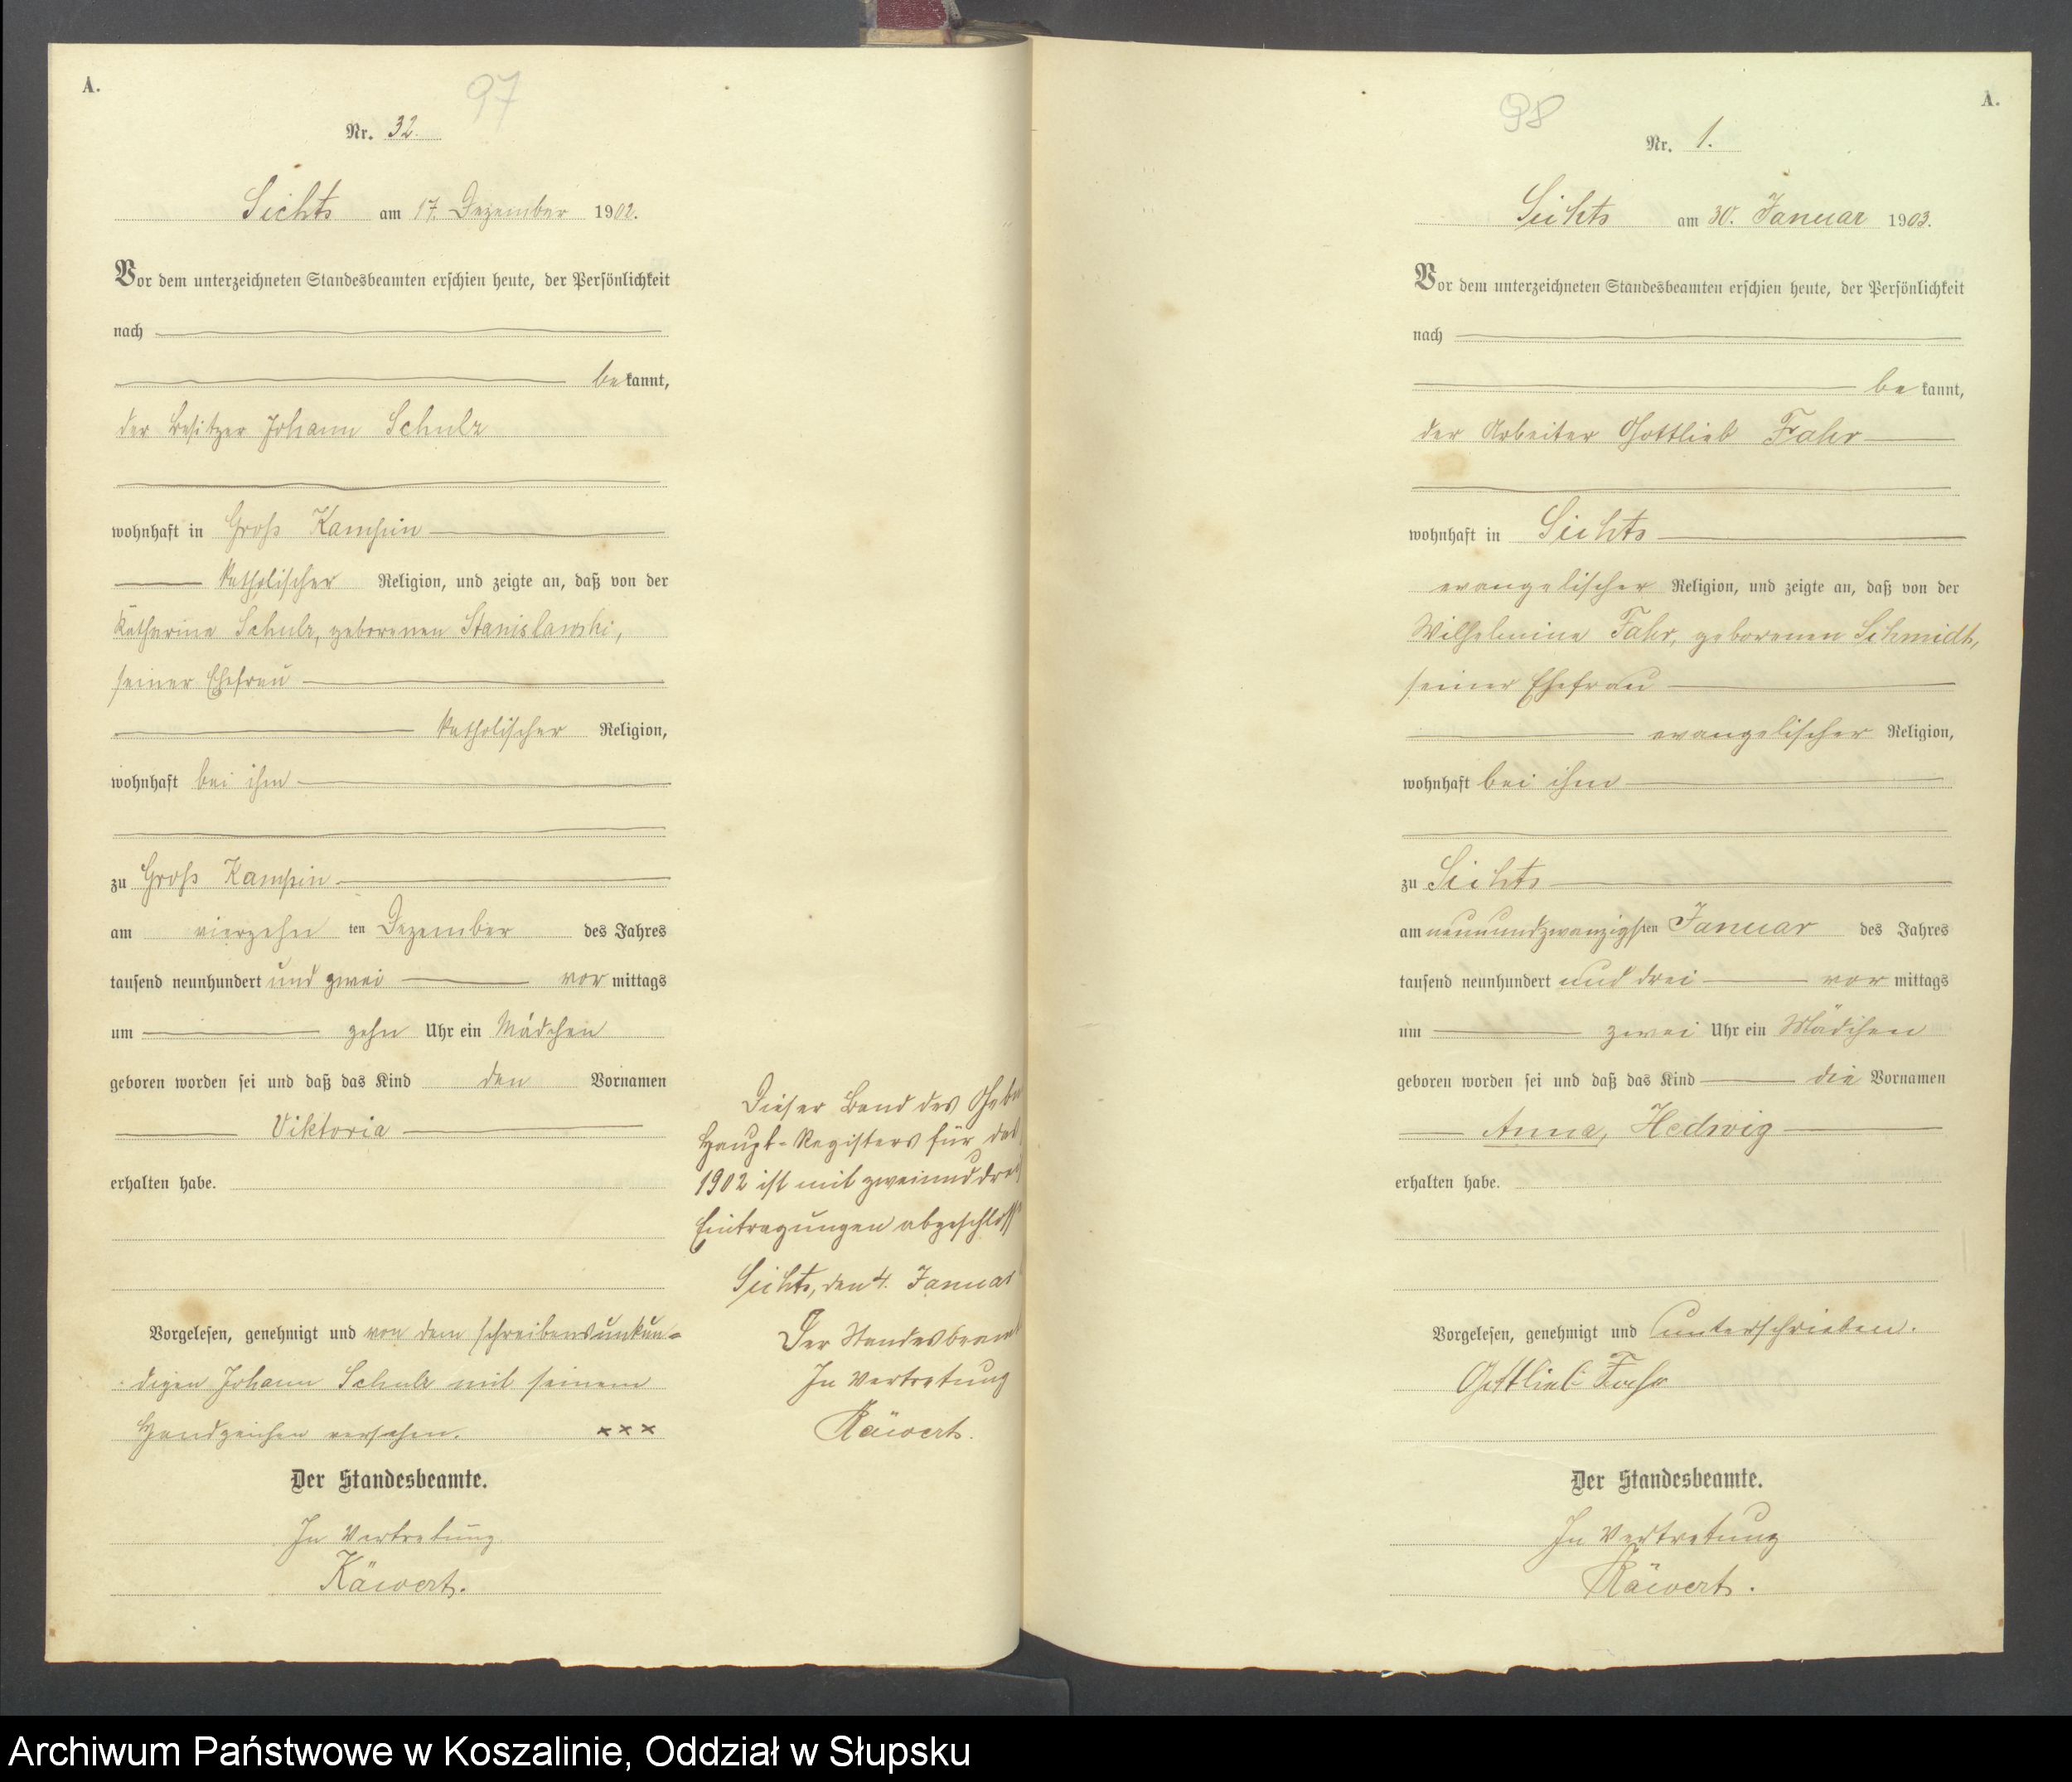 A.
97
Nr. 32.
Sichts am 17. Dezember 1902.
Vor dem unterzeichneten Standesbeamten erschien heute, der Persönlichkeit
nach
be kannt,
der Besitzer Johann Schulz
wohnhaft in Groß Kampin
katholischer Religion, und zeigte an, daß von der
Katharina Schulz, geborenen Stanislawski,
seiner Ehefrau
katholischer Religion,
wohnhaft bei ihm
zu Groß Kampin
am vierzehn ten Dezember des Jahres
tausend neunhundert und zwei vor mittags
um zehn Uhr ein Mädchen
geboren worden sei und daß das Kind den Vornamen
Viktoria
erhalten habe.
Vorgelesen, genehmigt und von dem schreibensunkun-
digen Johann Schulz mit seinem
Handzeichen versehen. xxx
Der Standesbeamte.
In Vertretung
Käwert.
Dieser Band des Gebu
Haupt-Registers für das
1902 ist mit zweiunddrei
Eintragungen abgeschloss
Sichts, den 4. Januar
Der Standesbeamt
In Vertretung
Käwert.
A.
98
Nr. 1.
Sichts am 30. Januar 1903.
Vor dem unterzeichneten Standesbeamten erschien heute, der Persönlichkeit
nach
be kannt,
der Arbeiter Gottlieb Fahr
wohnhaft in Sichts
evangelischer Religion, und zeigte an, daß von der
Wilhelmine Fahr, geborenen Schmidt,
seiner Ehefrau
evangelischer Religion,
wohnhaft bei ihm
zu Sichts
am neunundzwanzigsten Januar des Jahres
tausend neunhundert und drei vor mittags
um zwei Uhr ein Mädchen
geboren worden sei und daß das Kind die Vornamen
Anna, Hedwig
erhalten habe.
Vorgelesen, genehmigt und unterschrieben.
Gottlieb Fahr
Der Standesbeamte.
In Vertretung
Käwert.
Archiwum Państwowe w Koszalinie, Oddział w Słupsku